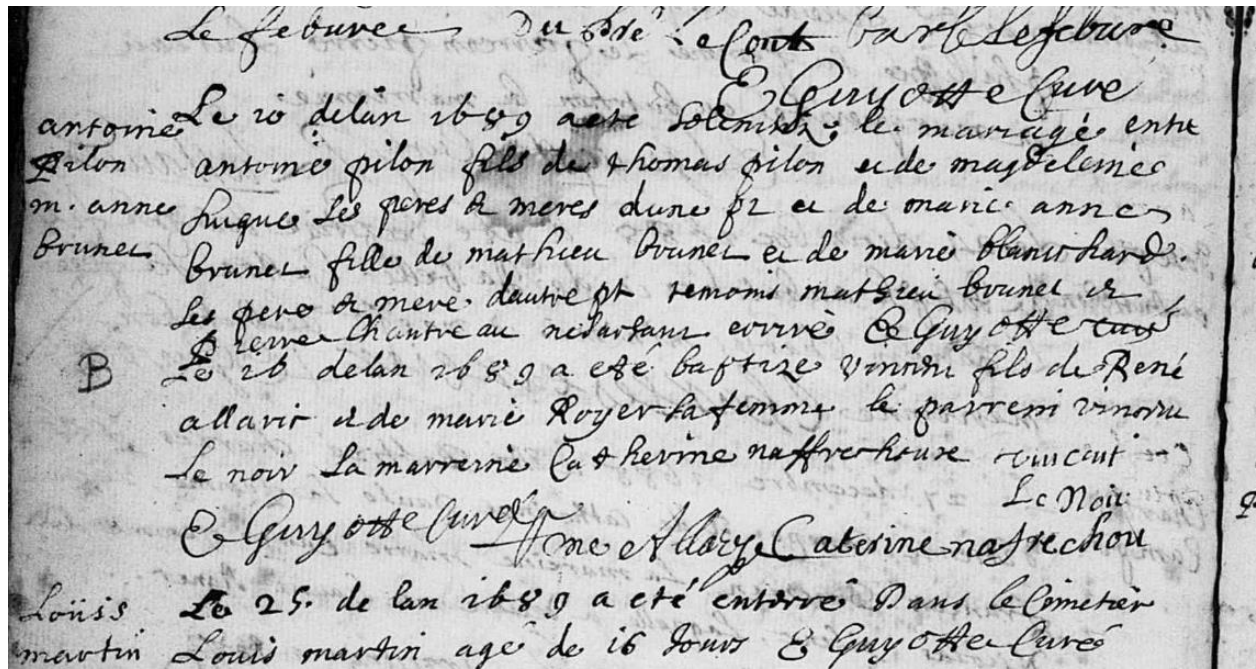 Lefebvre Du pré Le Cont barbe lefebure
E Guyotte Curé
antoine Pilon m. anne brunet
Le 20 de lan 1689 a eté Solemnizé le mariage entre
antoine pilon fils de thomas pilon et de magdeleinee
hugue Ses peres & meres dune pt et de marie anne
brunet fille de mathieu brunet et de marie blanchard
Ses pere & mere dautre pt temoins mathieu brunet &
pierre Chantreau nesachant ecrire E Guyotte curé
B
Le 26 de lan 1689 a eté baptize Vincent fils de René
allarie et de marie Royer sa femme le parrein vincent
le noir La marreine Catherine naffrechoux vincent
Le Noir
E Guyotte Curé Caterine nafrechou
Loüis martin
Le 25. de lan 1689 a eté enterré Dans le Cimetier
Louis martin agé de 16 Jours E Guyotte Curé